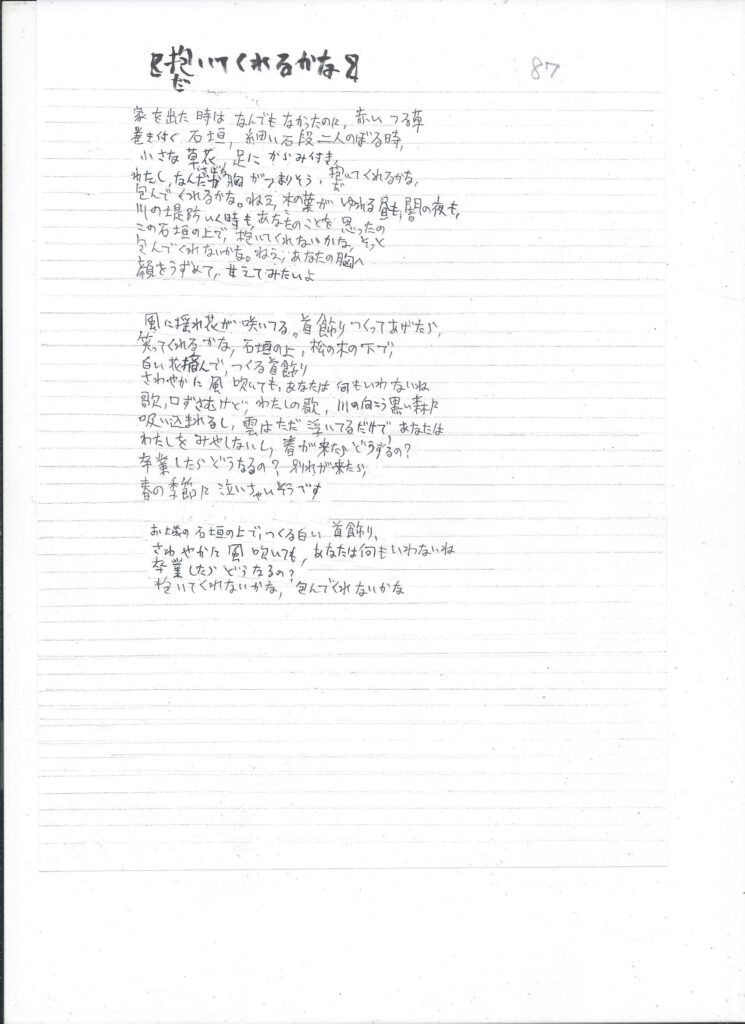 『抱いてくれるかな』
だ
87
家を出た時は なんでもなかったのに, 赤い つる草
巻き付く 石垣, 細い石段 二人のぼる時,
小さな草花, 足に からみ付き,
わたし, なんだか 胸がつまりそう, 抱いてくれるかな,
だ
包んでくれるかな。ねえ, 木の葉が ゆれる 昼も, 闇の夜も,
川の堤防 いく時も, あなたのことを 思ったの
この石垣の上で, 抱いてくれないかな, そっと
包んでくれないかな。ねえ, あなたの胸へ
顔をうずめて, 甘えてみたいよ
風に揺れ花が 咲いてる。首飾り つくってあげたら,
笑ってくれるかな, 石垣の上, 松の木の下で,
白い花摘んで, つくる首飾り
さわやかに 風 吹いても, あなたは 何もいわないね
歌, 口ずさむけど, わたしの歌, 川の向こう 黒い森に
吸い込まれるし, 雲はただ 浮いてるだけで あなたは
わたしを みやしないし, 春が来たら どうするの?
卒業したら どうなるの? 別れが来たら,
春の季節に 泣いちゃいそうです
お城の 石垣の上で, つくる白い 首飾り,
さわやかに 風 吹いても, あなたは何もいわないね
卒業したら どうなるの?
抱いてくれないかな, 包んでくれないかな